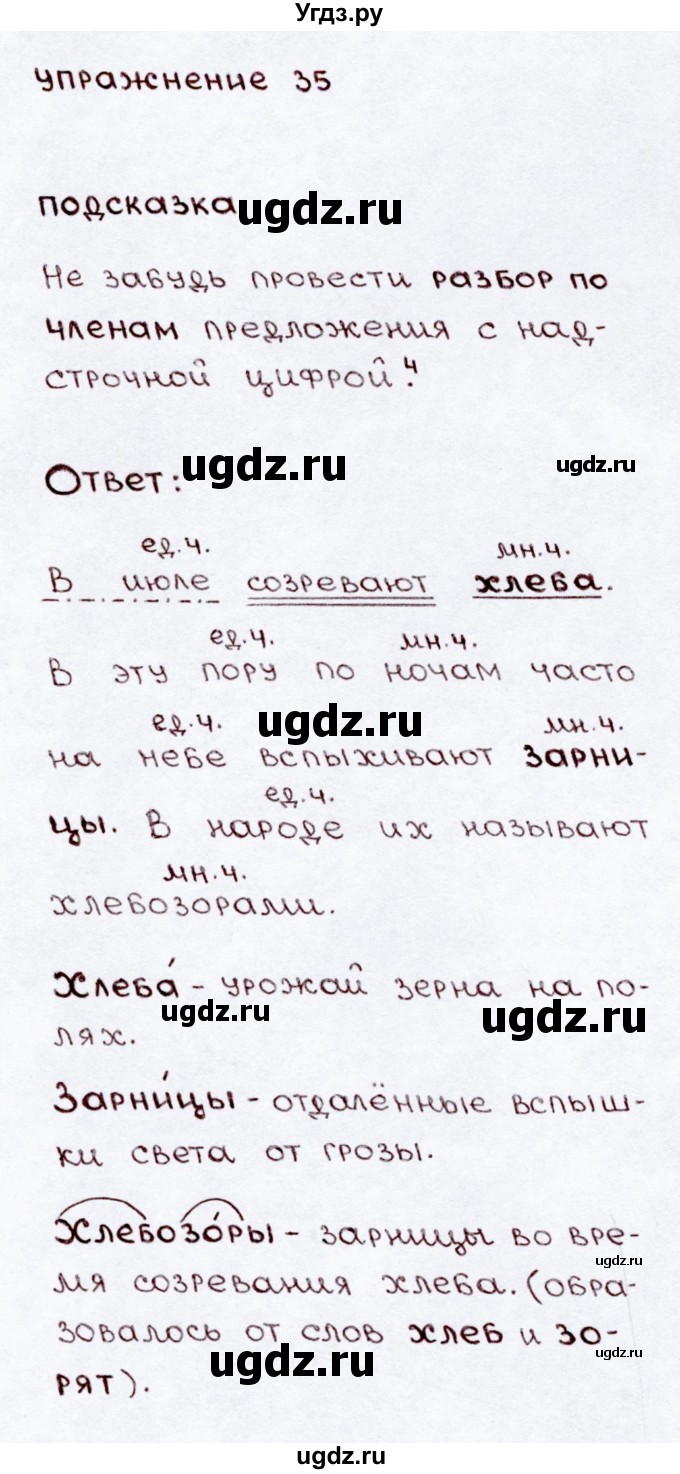 Угдз.ру
упражнение 35
подсказка
ugdz.ru
Не забудь провести разбор по
членам предложения с над-
строчной цифрой⁴.
Ответ:
ugdz.ru
ugdz.ru
ед.ч. мн.ч.
В июле созревают хлеба.
ед.ч. мн.ч.
В эту пору по ночам часто
ед.ч. ugdz.ru мн.ч.
на небе вспыхивают зарни-
ед.ч.
цы. В народе их называют
мн.ч.
хлебозорами.
Хлеба́ - урожай зерна на по-
ugdz.ru
ugdz.ru
лях.
Зарни́цы - отдалённые вспыш-
ки света от грозы.
Хлебозо́ры - зарницы во вре-
ugdz.ru
мя созревания хлеба. (обра-
зовалось от слов хлеб и зо-
ugdz.ru
ugdz.ru
рят).
ugdz.ru